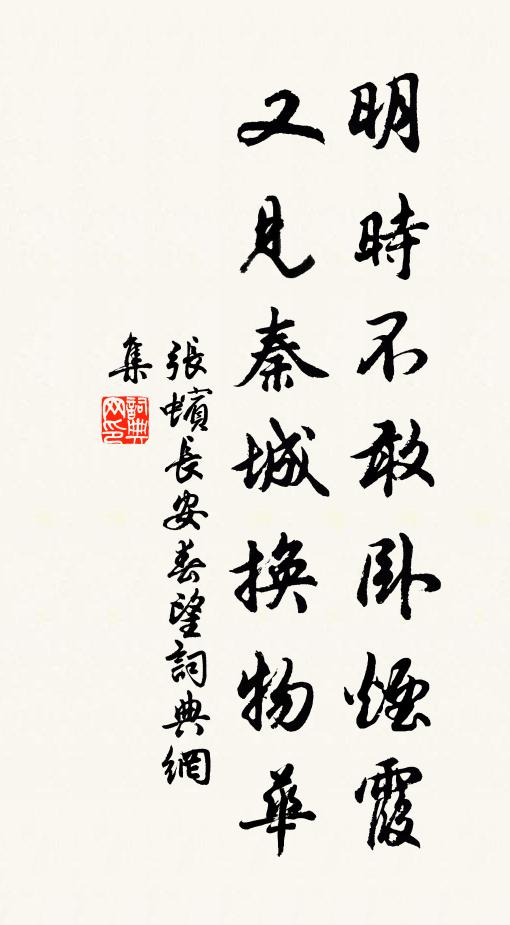 明時不敢卧煙霞
又見秦城換物華
張蠙長安春望詞典網
集
詞典网印